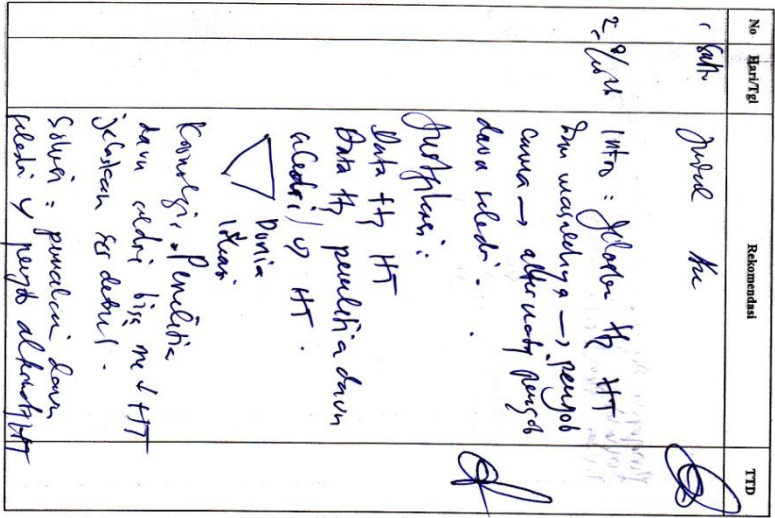 No Hari/Tgl Rekomendasi TTD
Judul Acc
2.
Intro : Jelaskan ttg HT
dan masalahnya → pengob
cuma → alternatif pengob
daun seledri.
Justifikasi :
Data ttg HT
Data ttg penelitia daun
seledri / HT.
Dunia
Kronologi : Penelitia
daun seledri bisa me ↓ HT
jelaskan
Solusi : pemakai daun
seledri pengob alternatif HT